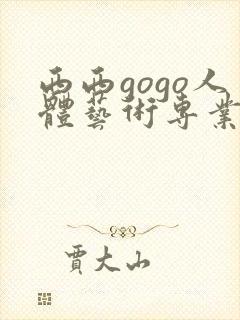 西西gogo人
體藝術專業
賈大山